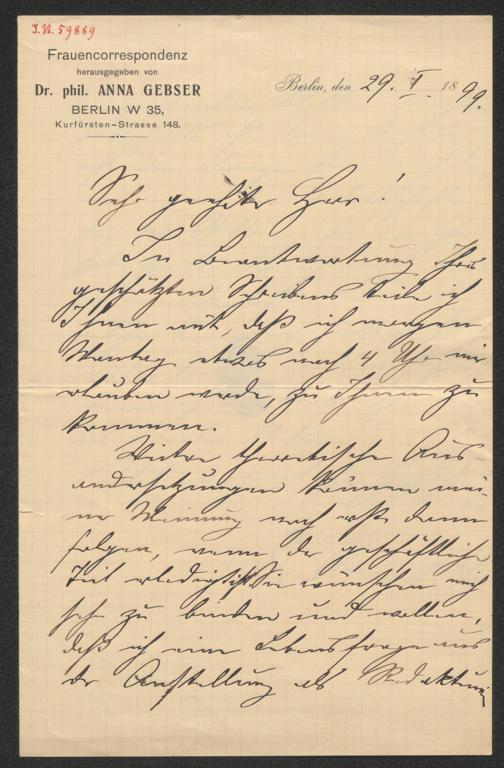 J.N. 59889
Frauencorrespondenz
herausgegeben von
Dr. phil. ANNA GEBSER
BERLIN W 35,
Kurfürsten-Strasse 148.
Berlin, den 29. I. 1899.
Sehr geehrter Herr!
In Beantwortung Ihres
geschätzten Schreibens teile ich
Ihnen mit, daß ich morgen
Montag etwas nach 4 Uhr mir
erlauben werde, zu Ihnen zu
kommen.
Weitere theoretische Aus
andersetzungen können mei-
ner Meinung nach erst dann
folgen, wenn der geschäftliche
Teil erledigt ist. Sie wünschen mich
sehr zu binden und wollen,
daß ich eine Lebensfrage aus
der Anstellung als Redakteurin